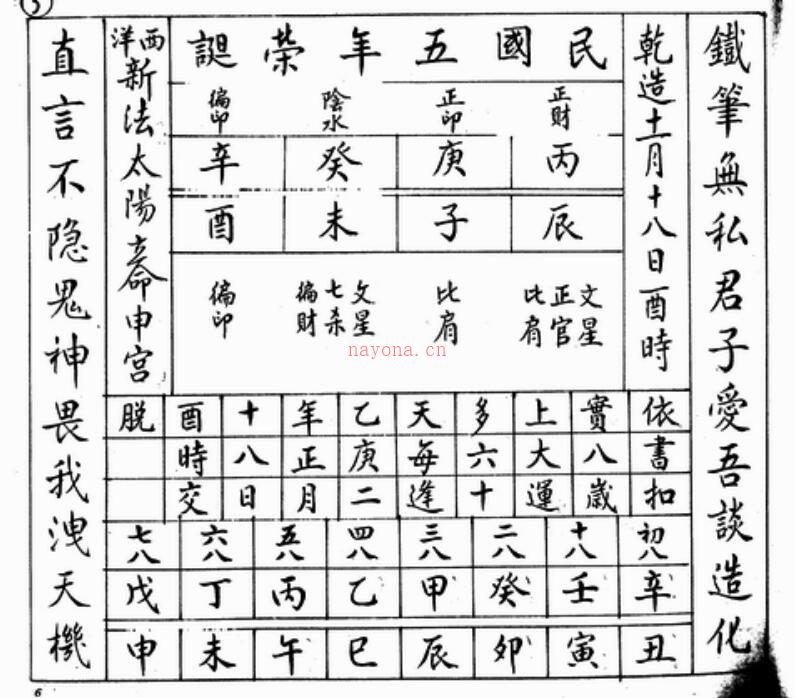 5
鐵筆無私君子愛吾談造化
乾造十一月十八日酉時
民國五年榮誕
正財 正印 陰水 偏印
丙 庚 癸 辛
辰 子 未 酉
文星正官比肩 比肩 文星七杀偏財 偏印
西洋新法太陽命申宮
依書扣
實八歲
上大運
多六十
天每逢
乙庚二
年正月
十八日
酉時交
脫
初八 十八 二八 三八 四八 五八 六八 七八
辛 壬 癸 甲 乙 丙 丁 戊
丑 寅 卯 辰 巳 午 未 申
直言不隐鬼神畏我洩天機
nayona.cn
6